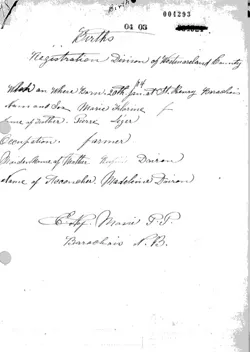 004293
04 05
Births
Registration Division of Westmoreland County
When an Where born. 20th Jan at St. Henry Barachois
Name and Sex Marie Florine f
Name of Father. Pierre Leger
Occupation. farmer
Maiden Name of Mother Drison
Name of Accoucher. Madeleine Drison
Marie P.P.
Barachois N.B.